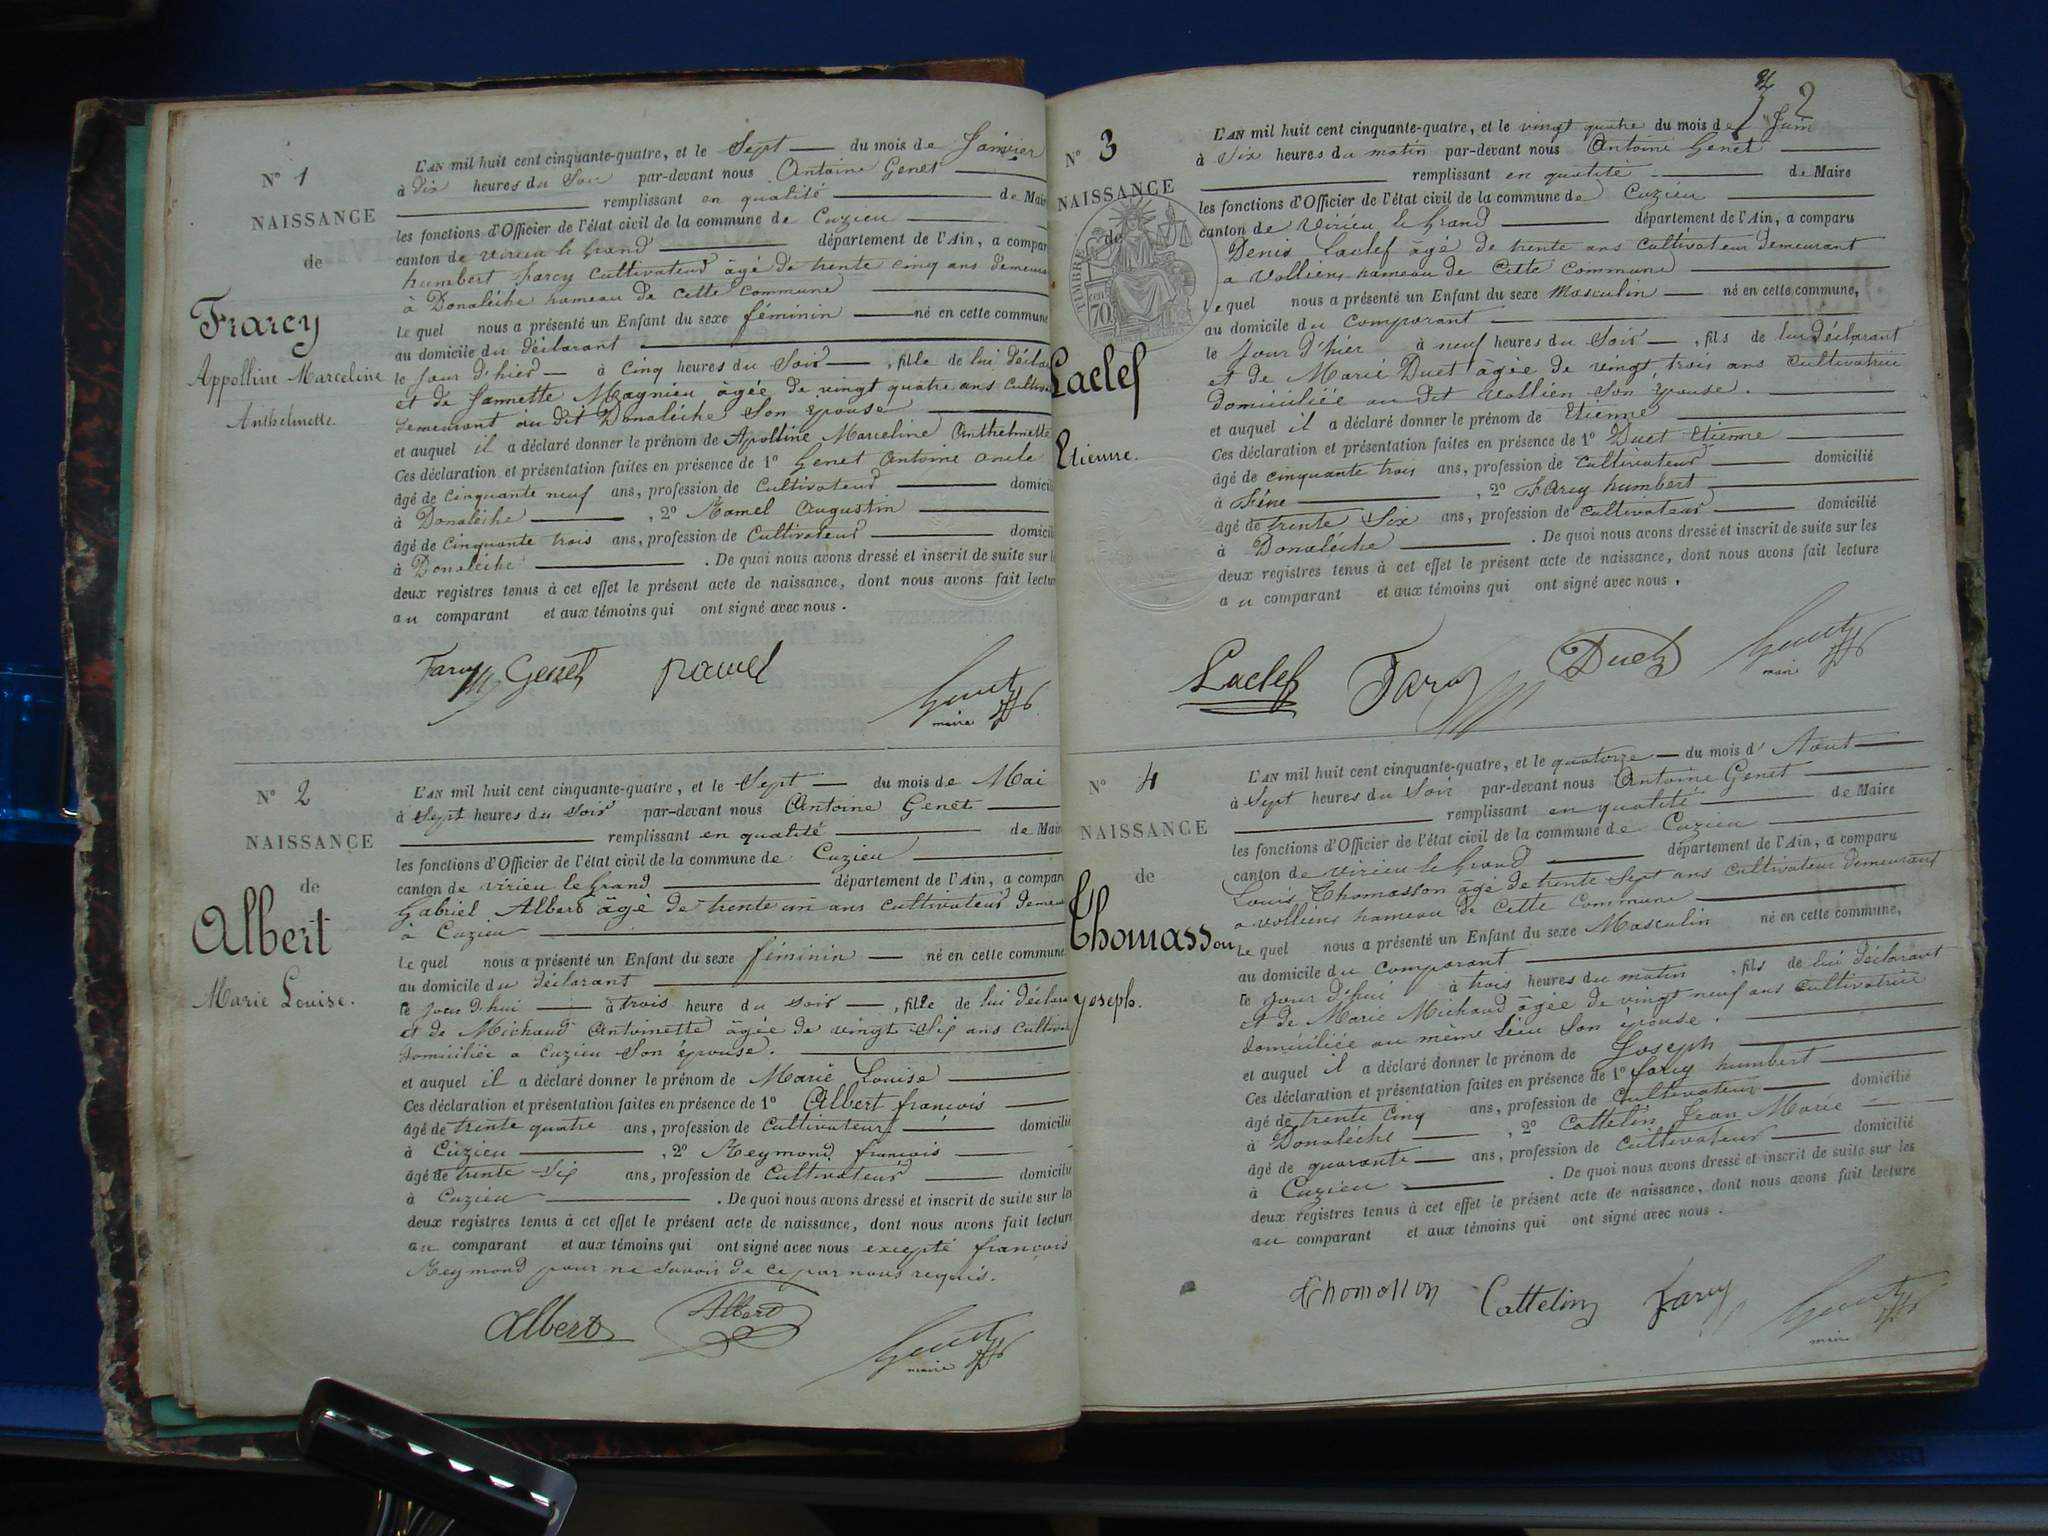 N° 1
NAISSANCE
de
Frarcy
Appolline Marceline
Anthelmette
L'AN mil huit cent cinquante-quatre, et le Sept du mois de Janvier
à Six heures du Soir par-devant nous Antoine Genet
remplissant en qualité de Mair
les fonctions d'Officier de l'état civil de la commune de Cuzieu
canton de virieu le Grand département de l'Ain, a compar
humbert Farcy Cultivateur âgé de trente cinq ans demeura
à Donalèche hameau de cette commune
le quel nous a présenté un Enfant du sexe féminin né en cette commune
au domicile du déclarant
le Jour d'hier à Cinq heures du Soir, fille de lui décla
et de Jannette Magnieu âgée de vingt quatre ans cultiv
demeurant au dit Donalèche Son épouse
et auquel il a déclaré donner le prénom de Apolline Marceline Anthelmette
Ces déclaration et présentation faites en présence de 1° Genet Antoine oncle
âgé de cinquante neuf ans, profession de Cultivateur domicili
à Donalèche, 2° Ramel Augustin
âgé de Cinquante trois ans, profession de Cultivateur domicili
à Donalèche. De quoi nous avons dressé et inscrit de suite sur l
deux registres tenus à cet effet le présent acte de naissance, dont nous avons fait lectur
au comparant et aux témoins qui ont signé avec nous.
Farcy Genet Ramel
Genet
maire
N° 2
NAISSANCE
de
Albert
Marie Louise.
L'AN mil huit cent cinquante-quatre, et le Sept du mois de Mai
à Sept heures du Soir par-devant nous Antoine Genet
remplissant en qualité de Mair
les fonctions d'Officier de l'état civil de la commune de Cuzieu
canton de virieu le grand département de l'Ain, a compar
Gabriel Albert âgé de trente un ans cultivateur demeu
à Cuzieu
le quel nous a présenté un Enfant du sexe féminin né en cette commune
au domicile du déclarant
le Jour d'hui à trois heure du soir, fille de lui déclar
et de Michaud Antoinette âgée de vingt Six ans Cultiva
domiciliée a Cuzieu Son épouse.
et auquel il a déclaré donner le prénom de Marie Louise
Ces déclaration et présentation faites en présence de 1° Albert françois
âgé de trente quatre ans, profession de Cultivateur domicilié
à Cuzieu, 2° Reymond françois
âgé de trente Six ans, profession de Cultivateur domicilié
à Cuzieu. De quoi nous avons dressé et inscrit de suite sur les
deux registres tenus à cet effet le présent acte de naissance, dont nous avons fait lecture
au comparant et aux témoins qui ont signé avec nous excepté françois
Reymond pour ne savoir de ce par nous requis.
Albert Albert
Genet
maire
2
N° 3
NAISSANCE
de
TIMBRE
70 cent
Laclef
Etienne.
L'AN mil huit cent cinquante-quatre, et le vingt quatre du mois de Juin
à Six heures du matin par-devant nous Antoine Genet
remplissant en qualité de Maire
les fonctions d'Officier de l'état civil de la commune de Cuzieu
canton de virieu le Grand département de l'Ain, a comparu
Denis Laclef âgé de trente ans cultivateur demeurant
a Vollien hameau de Cette Commune
le quel nous a présenté un Enfant du sexe Masculin né en cette commune,
au domicile du comparant
le Jour d'hier à neuf heures du Soir, fils de lui déclarant
et de Marie Duet âgée de vingt, trois ans cultivatrice
domiciliée au dit Vollien Son épouse.
et auquel il a déclaré donner le prénom de Etienne
Ces déclaration et présentation faites en présence de 1° Duet Etienne
âgé de cinquante trois ans, profession de Cultivateur domicilié
à, 2° Farcy humbert
âgé de trente Six ans, profession de Cultivateur domicilié
à Donalèche. De quoi nous avons dressé et inscrit de suite sur les
deux registres tenus à cet effet le présent acte de naissance, dont nous avons fait lecture
au comparant et aux témoins qui ont signé avec nous.
Laclef Farcy Duet
Genet
maire
N° 4
NAISSANCE
de
Thomasson
Yoseph.
L'AN mil huit cent cinquante-quatre, et le quatorze du mois d' Aout
à Sept heures du Soir par-devant nous Antoine Genet
remplissant en qualité de Maire
les fonctions d'Officier de l'état civil de la commune de Cuzieu
canton de virieu le Grand département de l'Ain, a comparu
Louis Thomasson âgé de trente Sept ans cultivateur demeurant
a vollien hameau de Cette Commune
le quel nous a présenté un Enfant du sexe Masculin né en cette commune,
au domicile du comparant
le Jour d'hui à trois heures du matin, fils de lui déclarant
et de Marie Michaud âgée de vingt neuf ans cultivatrice
domiciliée au même Lieu Son épouse.
et auquel il a déclaré donner le prénom de Joseph
Ces déclaration et présentation faites en présence de 1° Farcy humbert
âgé de trente Cinq ans, profession de Cultivateur domicilié
à Donalèche, 2° Cattelin Jean Marie
âgé de quarante ans, profession de Cultivateur domicilié
à Cuzieu. De quoi nous avons dressé et inscrit de suite sur les
deux registres tenus à cet effet le présent acte de naissance, dont nous avons fait lecture
au comparant et aux témoins qui ont signé avec nous.
Thomasson Cattelin Farcy
Genet
maire